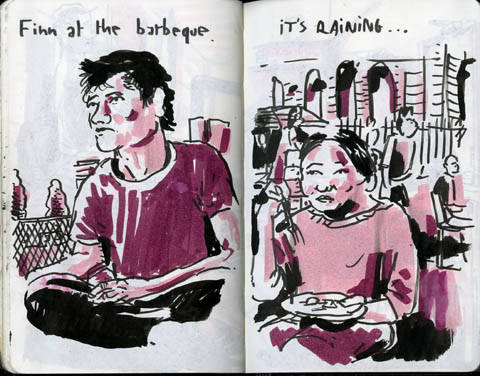 Finn at the barbeque.
iT'S RAiNiNG...